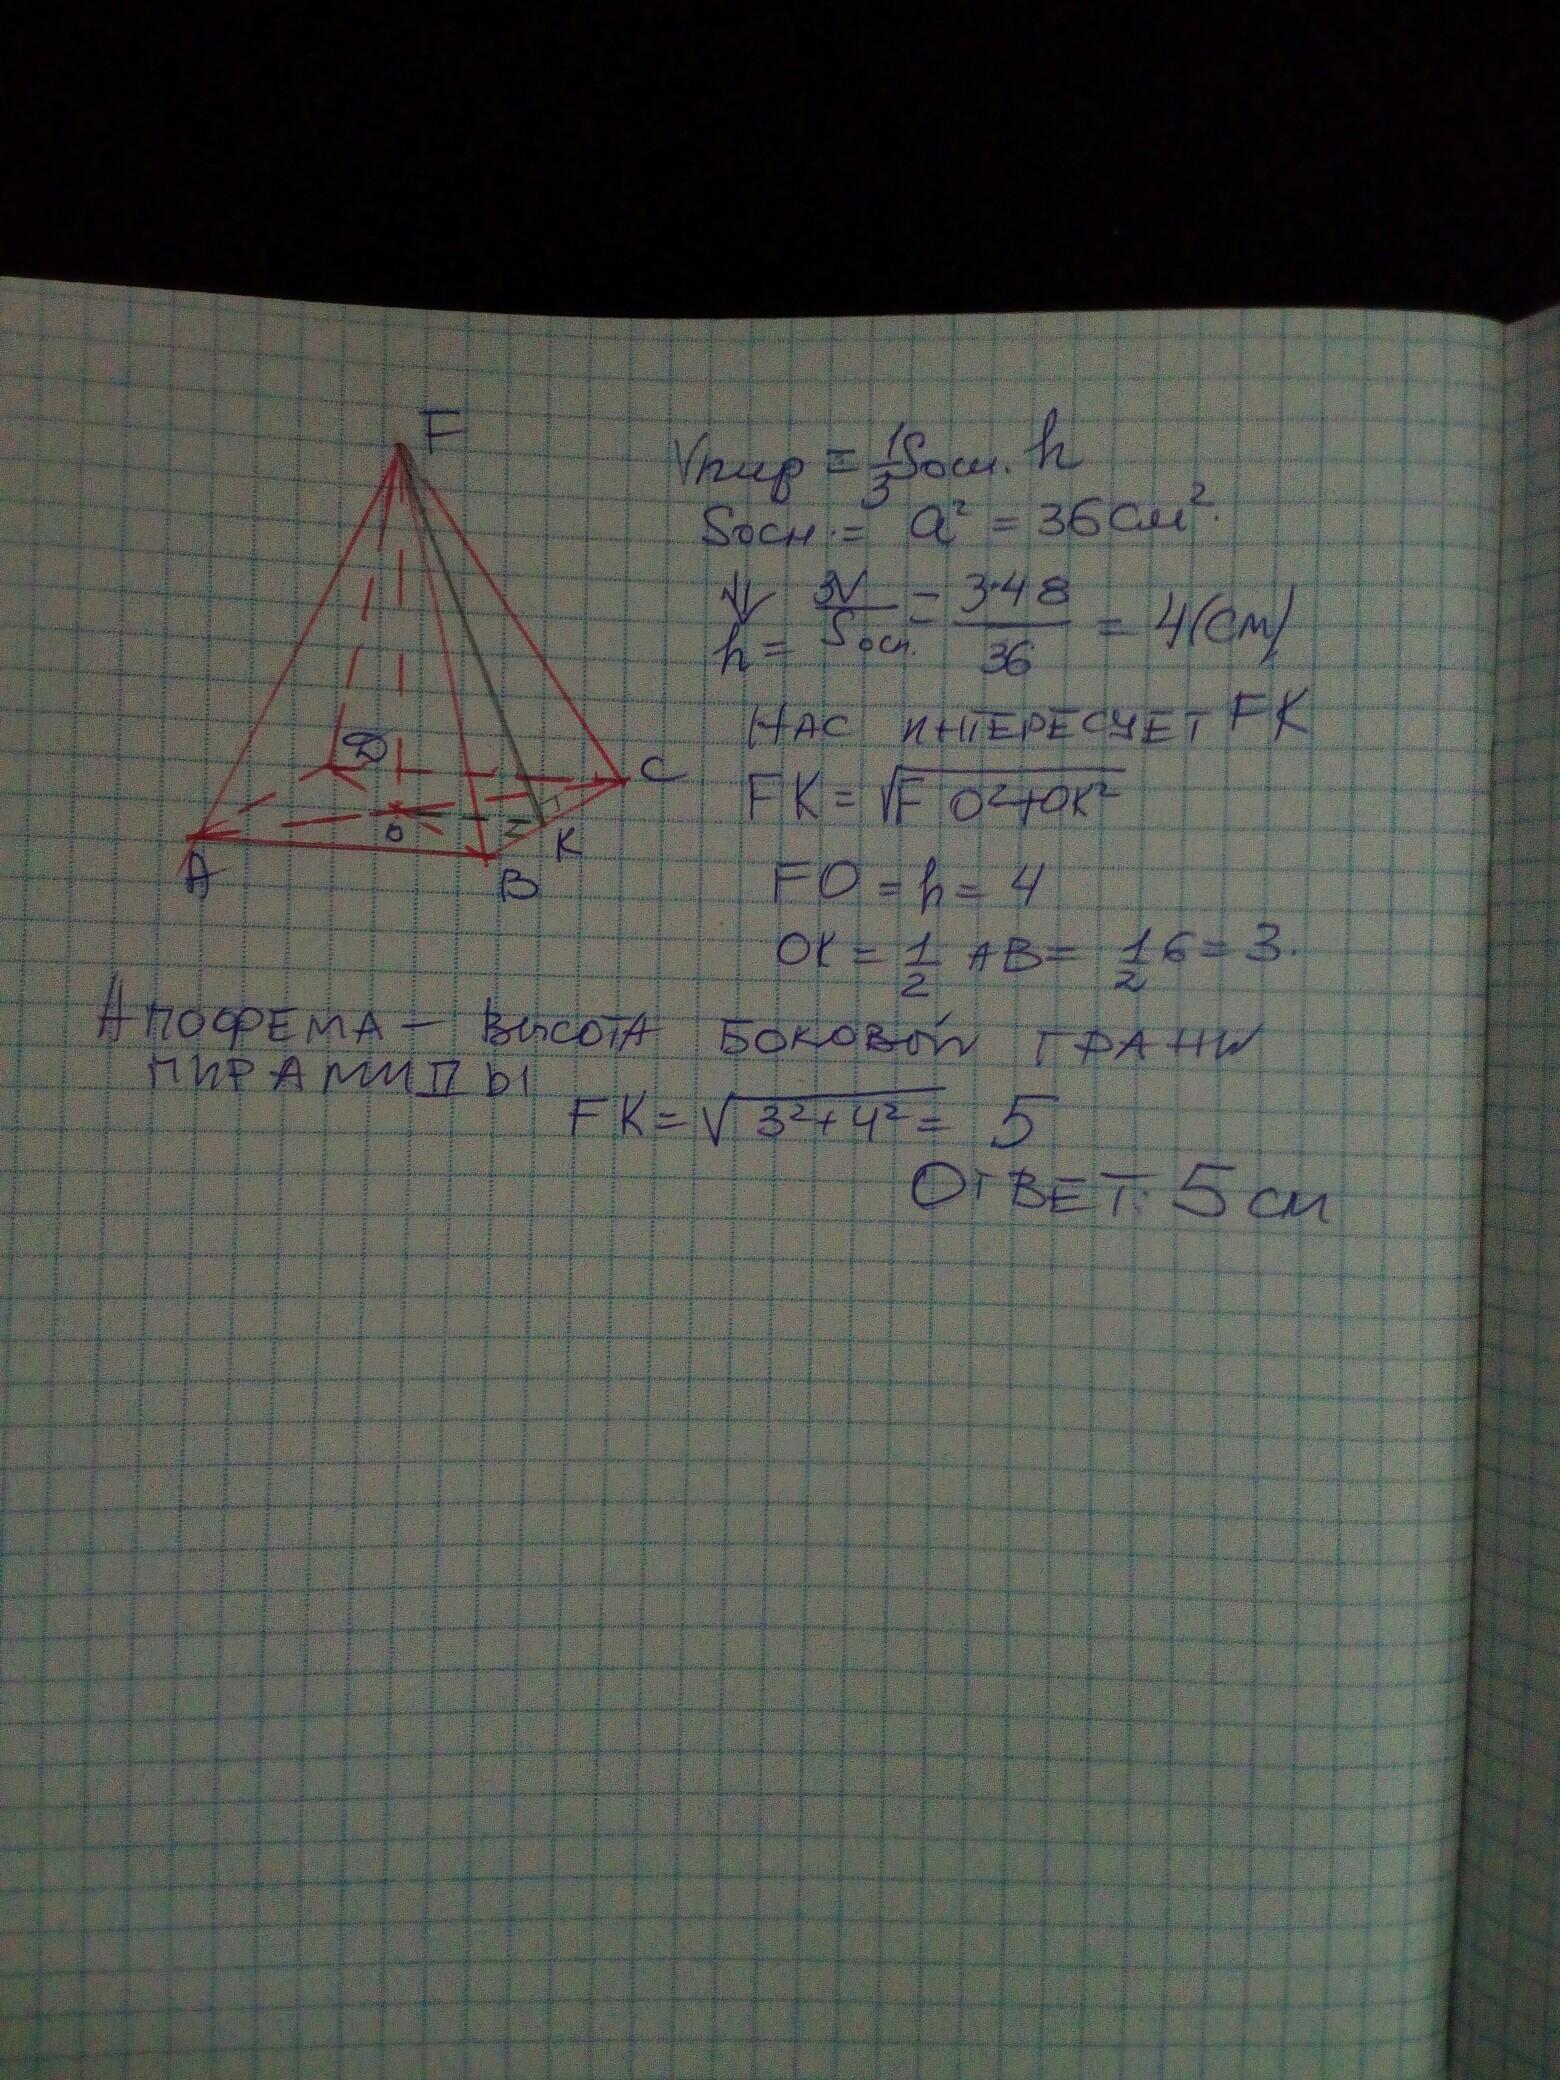 F
D
C
O
K
A
B
Vпир = 1/3 Sосн. h
Sосн. = a² = 36 см².
⇓
h = 3V/Sосн. = 3·48/36 = 4 (см)
НАС ИНТЕРЕСУЕТ FK
FK = √FO²+OK²
FO = h = 4
OK = 1/2 AB = 1/2 6 = 3.
АПОФЕМА — ВЫСОТА БОКОВОЙ ГРАНИ
ПИРАМИДЫ
FK = √3²+4² = 5
ОТВЕТ: 5 см